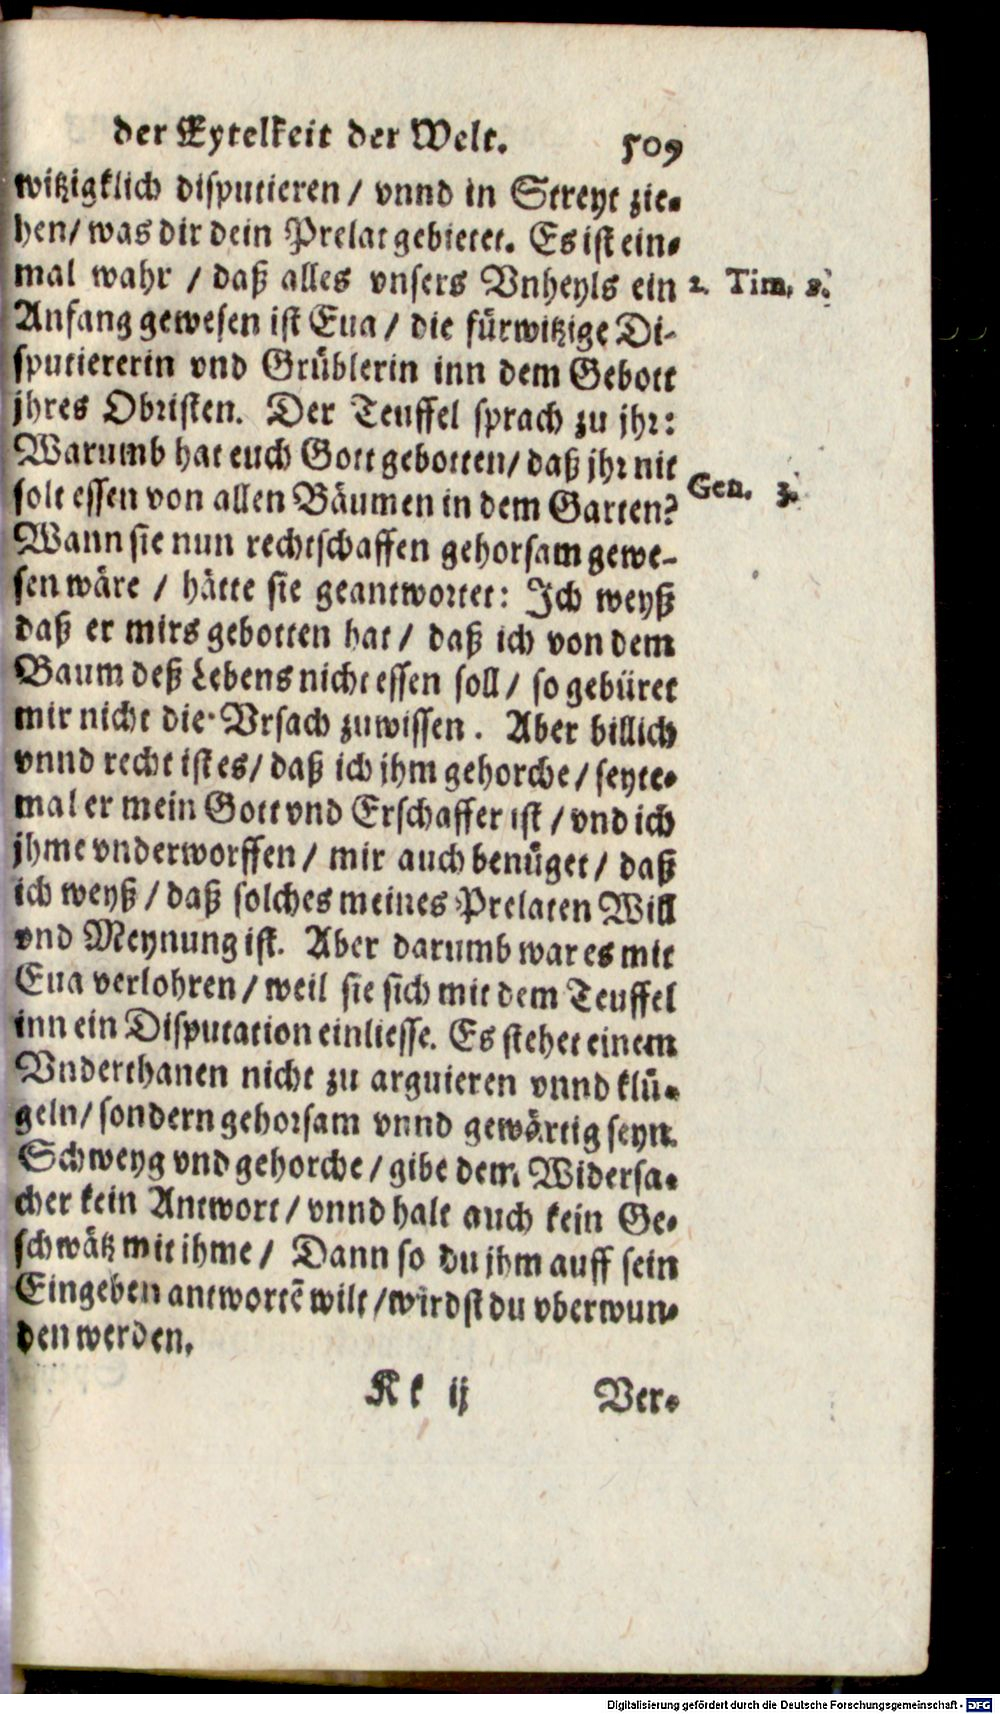 der Eytelkeit der Welt. 509
witzigklich disputieren / vnnd in Streyt zie-
hen / was dir dein Prelat gebietet. Es ist ein-
mal wahr / daß alles vnsers Vnheyls ein
2. Tim. 2.
Anfang gewesen ist Eua / die fürwitzige Di-
sputiererin vnd Grüblerin inn dem Gebott
jhres Obristen. Der Teuffel sprach zu jhr:
Warumb hat euch Gott gebotten / daß jhr nit
Gen. 3.
solt essen von allen Bäumen in dem Garten?
Wann sie nun rechtschaffen gehorsam gewe-
sen wäre / hätte sie geantwortet: Ich weyß
daß er mirs gebotten hat / daß ich von dem
Baum deß Lebens nicht essen soll / so gebüret
mir nicht die Vrsach zuwissen. Aber billich
vnnd recht ist es / daß ich jhm gehorche / seyte-
mal er mein Gott vnd Erschaffer ist / vnd ich
jhme vnderworffen / mir auch benüget / daß
ich weyß / daß solches meines Prelaten Will
vnd Meynung ist. Aber darumb war es mit
Eua verlohren / weil sie sich mit dem Teuffel
inn ein Disputation einliesse. Es stehet einem
Vnderthanen nicht zu arguieren vnnd klü-
geln / sondern gehorsam vnnd gewärtig seyn.
Schweyg vnd gehorche / gibe dem Widersa-
cher kein Antwort / vnnd halt auch kein Ge-
schwätz mit ihme / Dann so du jhm auff sein
Eingeben antwortẽ wilt / wirdst du vberwun-
den werden.
Kk ij Ver-
Digitalisierung gefördert durch die Deutsche Forschungsgemeinschaft - DFG